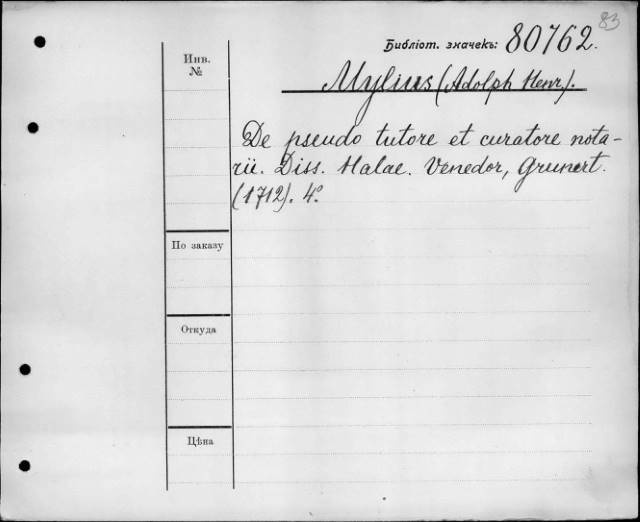 83
Библіот. значекъ: 80762.
Инв. №
Mylius (Adolph Henr.).
De pseudo tutore et curatore nota-
rii. Diss. Halae. Venedor, Grunert.
(1712). 4°.
По заказу
Откуда
Цѣна